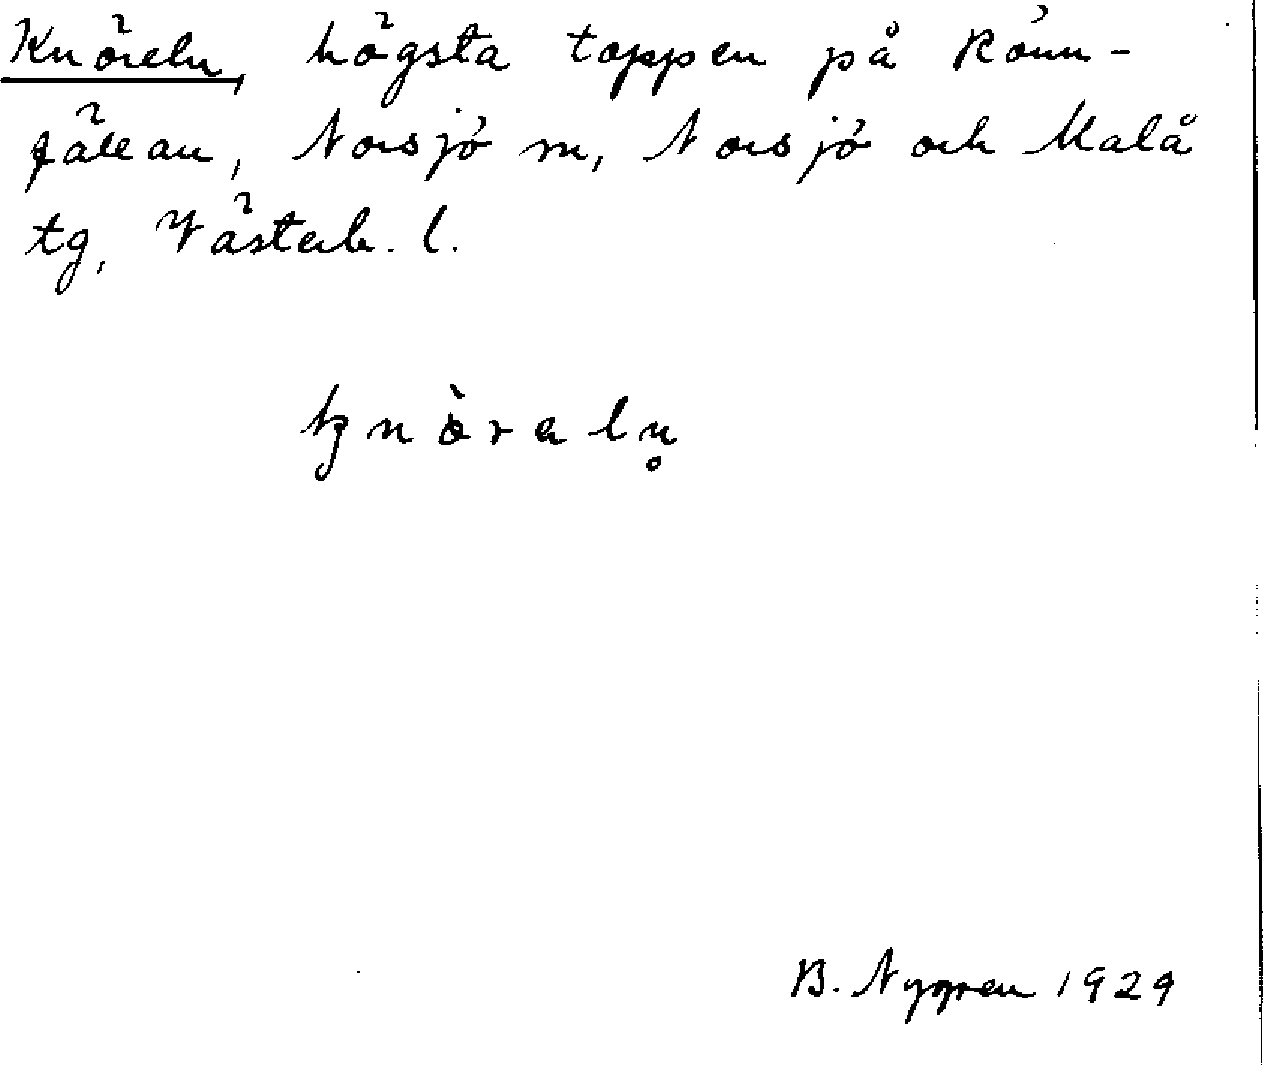 Knöreln, högsta toppen på Rönn-
fällan, Norsjö sn, Norsjö och Malå
tg, Västerb. l.
knö̀raln̥
B. Nygren 1929